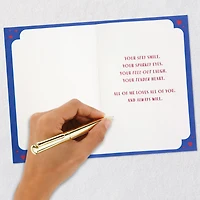 YOUR SEXY SMILE.
YOUR SPARKLY EYES.
YOUR FLIP OUT LAUGH.
YOUR TENDER HEART.
ALL OF ME LOVES ALL OF YOU.
AND ALWAYS WILL.